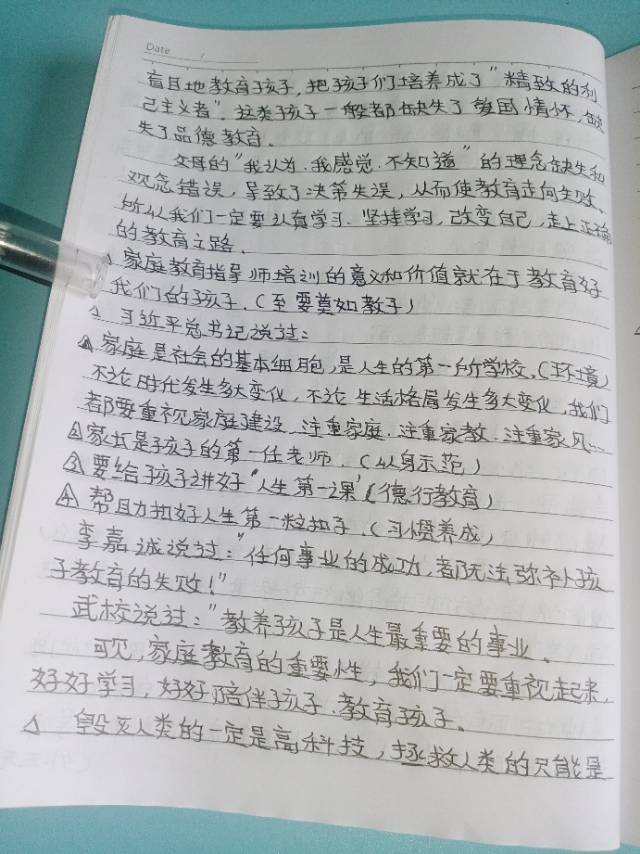 Date
盲目地教育孩子,把孩子们培养成了"精致的利
己主义者",这类孩子一般都缺失了爱国情怀,缺
失了品德教育。
父母的"我认为.我感觉.不知道"的理念缺失和
观念错误,导致了决策失误,从而使教育走向失败、
所以我们一定要认真学习.坚持学习,改变自己,走上正确
的教育之路.
家庭教育指导师培训的意义和价值就在于教育好
我们的孩子.(至要莫如教子)
习近平总书记说过:
家庭是社会的基本细胞,是人生的第一所学校.(环境)
不论时代发生多大变化,不论生活格局发生多大变化,我们
都要重视家庭建设.注重家庭.注重家教.注重家风…
②家长是孩子的第一任老师.(以身示范)
③要给孩子讲好"人生第一课"(德行教育)
④帮助扣好人生第一粒扣子.(习惯养成)
李嘉诚说过:"任何事业的成功,都无法弥补孩
子教育的失败!"
武校说过:"教养孩子是人生最重要的事业、
可见,家庭教育的重要性,我们一定要重视起来,
好好学习,好好陪伴孩子.教育孩子、
△ 毁灭人类的一定是高科技,拯救人类的只能是